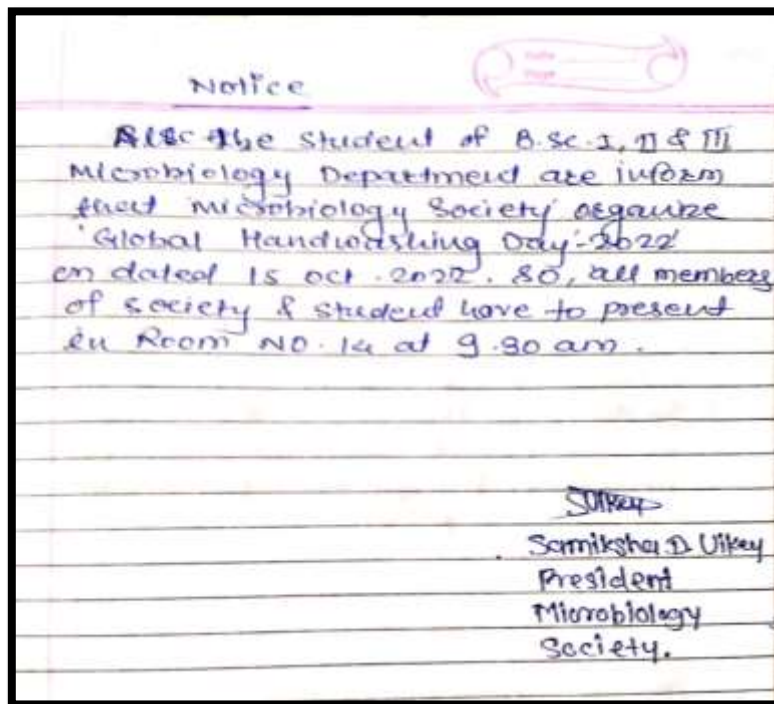 Notice
the student of B.Sc. I, II & III
Microbiology Department are inform
that microbiology Society organize
'Global Handwashing Day-2022
on dated 15 oct. 2022. So, all members
of society & student have to present
in Room NO. 14 at 9.30 am.
Samiksha D. Uikey
President
Microbiology
Society.